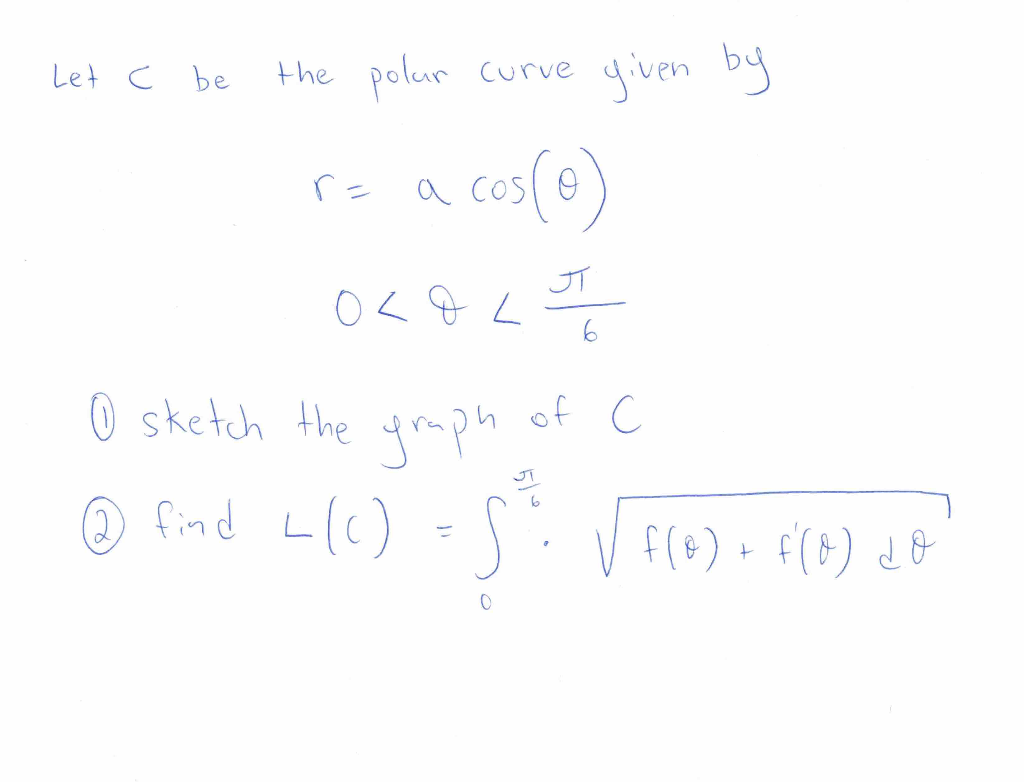 Let C be the polar curve given by
r = a cos(θ)
0 < θ < π/6
① sketch the graph of C
② find L(C) = ∫₀^(π/6) · √(f(θ) + f'(θ) dθ)